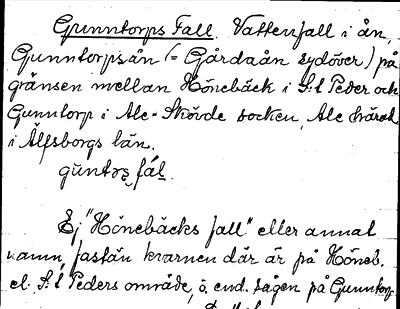 Gunntorps Fall. Vattenfall i ån,
Gunntorpsån (= Gårdaån sydöver) på
gränsen mellan Hönebäck i S:t Peder och
Gunntorp i Ale-Skövde socken, Ale härad
i Älfsborgs län.
guntɷʂ fál.
Ej "Hönebäcks fall" eller annat
namn, fastän kvarnen där är på Höneb.
el. S:t Peders område, o. end. sågen på Gunntorp.